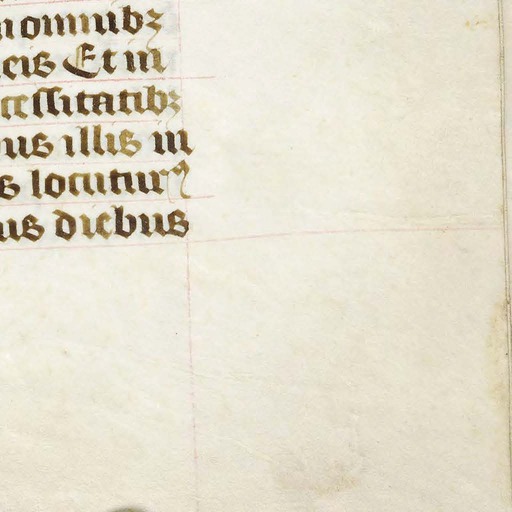 n omnibꝫ
cis Et in
cessitatibꝫ
bus illis in
s locutur᷑
us diebus